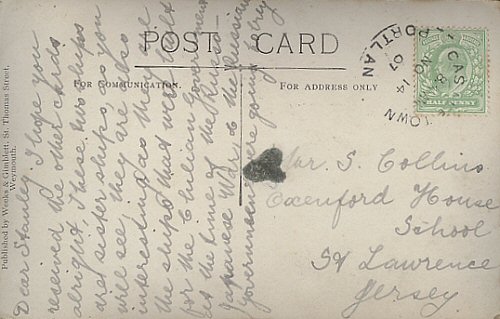 POST CARD
FOR COMMUNICATION.
FOR ADDRESS ONLY
Published by Weeks & Gimblett, St. Thomas Street,
Weymouth.
HALF PENNY
CASTLETOWN
PORTLAN
NO 14
07
Dear Stanley. I hope you
received the other cards
alright. These two ships
are sister ships, as you
will see, they are also
interesting as they are
the ships that were built
for the Chilian Government
at the time of the Russo-
Japanese War, & the Russian
Government were going to buy
Mr. S. Collins
Oxenford House
School
St Lawrence
Jersey